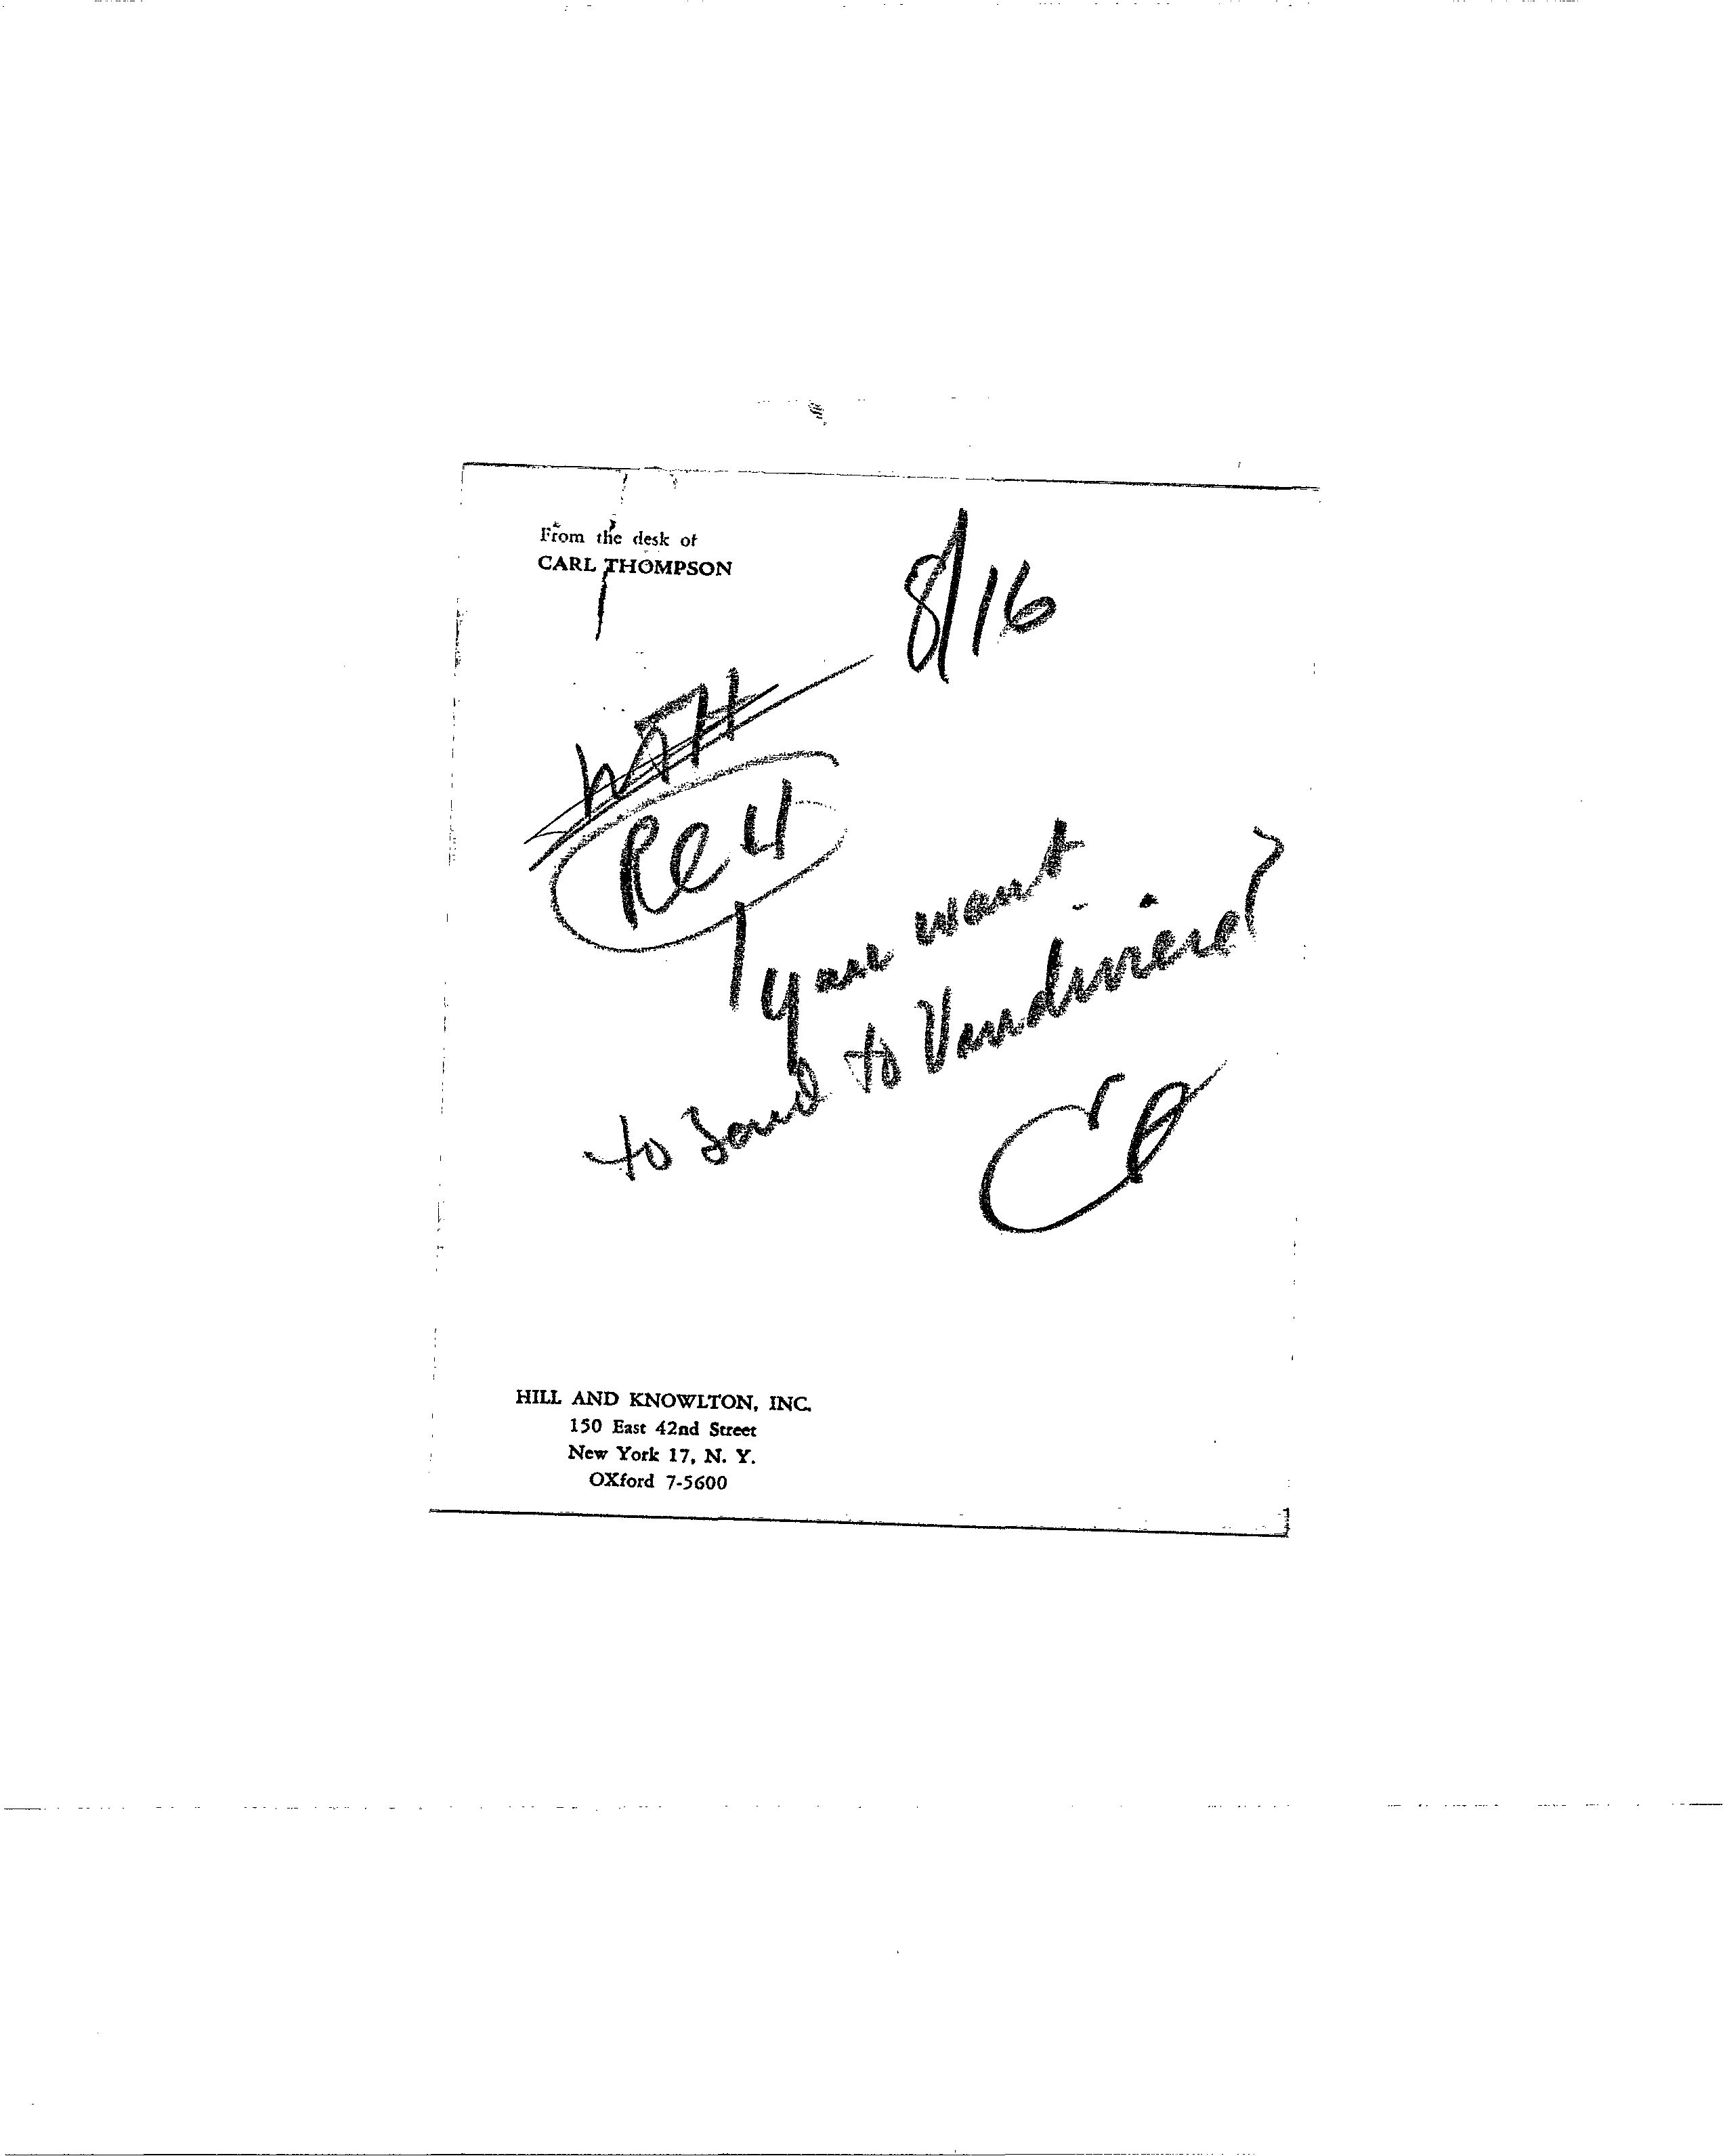 From the desk of
CARL THOMPSON
8/16
RCH
you want
to send to
HILL AND KNOWLTON, INC.
150 East 42nd Street
New York 17, N. Y.
OXford 7-5600